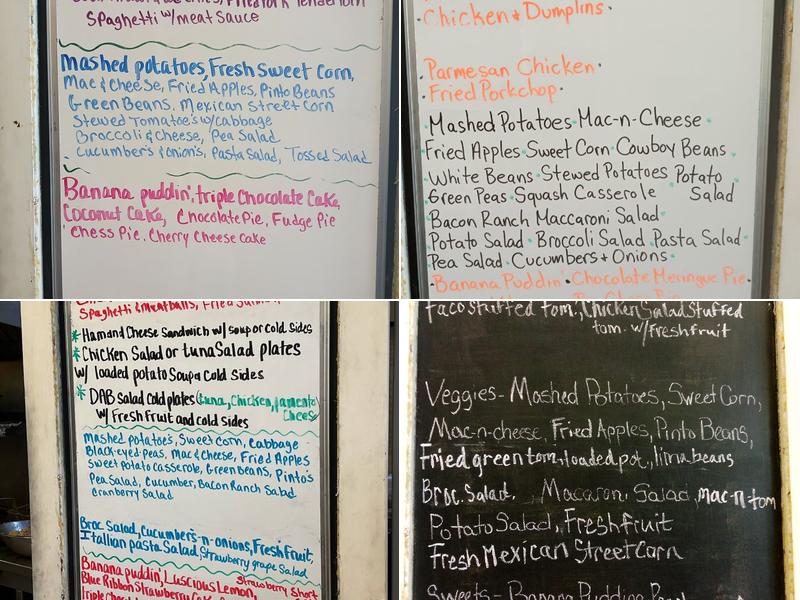 Spaghetti w/meat sauce
mashed potatoes, Fresh Sweet Corn,
Mac & Cheese, Fried Apples, Pinto Beans
Green Beans, Mexican Street Corn
Stewed Tomatoe's w/cabbage
Broccoli & cheese, Pea Salad
Cucumber's & onion's, Pasta Salad, Tossed Salad
Banana puddin', triple Chocolate Cake,
Coconut Cake, Chocolate Pie, Fudge Pie
Chess Pie, Cherry Cheese cake
Chicken + Dumplins
Parmesan Chicken
Fried Porkchop
Mashed Potatoes Mac-n-Cheese
Fried Apples Sweet Corn Cowboy Beans
White Beans Stewed Potatoes Potato
Green Peas Squash Casserole Salad
Bacon Ranch Maccaroni Salad
Potato Salad Broccoli Salad Pasta Salad
Pea Salad Cucumbers + Onions
Banana Puddin' Chocolate Meringue Pie
Spaghetti & meatballs, Fried
* Ham and Cheese Sandwich w/ soup or cold sides
* Chicken Salad or tuna Salad plates
w/ loaded potato Soup & Cold Sides
* DAB salad cold plates (tuna, Chicken, pamento
w/ Fresh Fruit and cold sides Cheese)
mashed potatoe's, Sweet corn, Cabbage
Black-eyed-peas, Mac & Cheese, Fried Apples
Sweet potato casserole, Green Beans, Pinto's
Pea Salad, Cucumber, Bacon Ranch Salad
Cranberry Salad
Broc Salad, Cucumber's-n-onions, Fresh Fruit,
Itallian pasta Salad, Strawberry grape Salad
Banana puddin', Luscious Lemon, Strawberry Short
Blue Ribbon Strawberry Cake
Triple Choc
Taco stuffed tom., Chicken Salad Stuffed
tom. w/ Fresh fruit
Veggies - Mashed Potatoes, Sweet Corn,
Mac-n-cheese, Fried Apples, Pinto Beans,
Fried green tom., loaded pot., lima beans
Broc. Salad, Macaroni Salad, mac-n tom
Potato Salad, Fresh fruit
Fresh Mexican Street Corn
Sweets - Banana Pudding